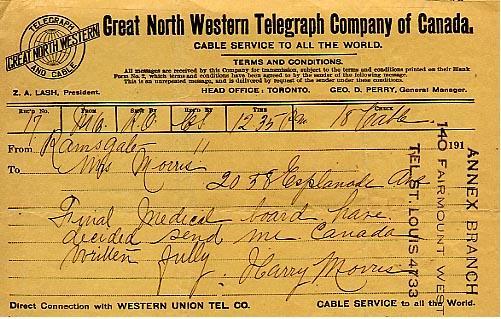 TELEGRAPH
GREAT NORTH WESTERN
AND CABLE
Great North Western Telegraph Company of Canada.
CABLE SERVICE TO ALL THE WORLD.
TERMS AND CONDITIONS.
All messages are received by this Company for transmission, subject to the terms and conditions printed on their Blank
Form No. 2, which terms and conditions have been agreed to by the sender of the following message.
This is an unrepeated message, and is delivered by request of the sender under these conditions.
Z. A. LASH, President. HEAD OFFICE: TORONTO. GEO. D. PERRY, General Manager.
REC'D NO. FROM SENT BY REC'D BY TIME CHECK
17 12.35 18 Cable
From Ramsgate 11 191
To Mrs Morris
2058 Esplanade Ave
Final Medical board have
decided send me Canada
written fully. Harry Morris
ANNEX BRANCH
140 FAIRMOUNT WEST
TEL. ST. LOUIS 4733
Direct Connection with WESTERN UNION TEL. CO. CABLE SERVICE to all the World.